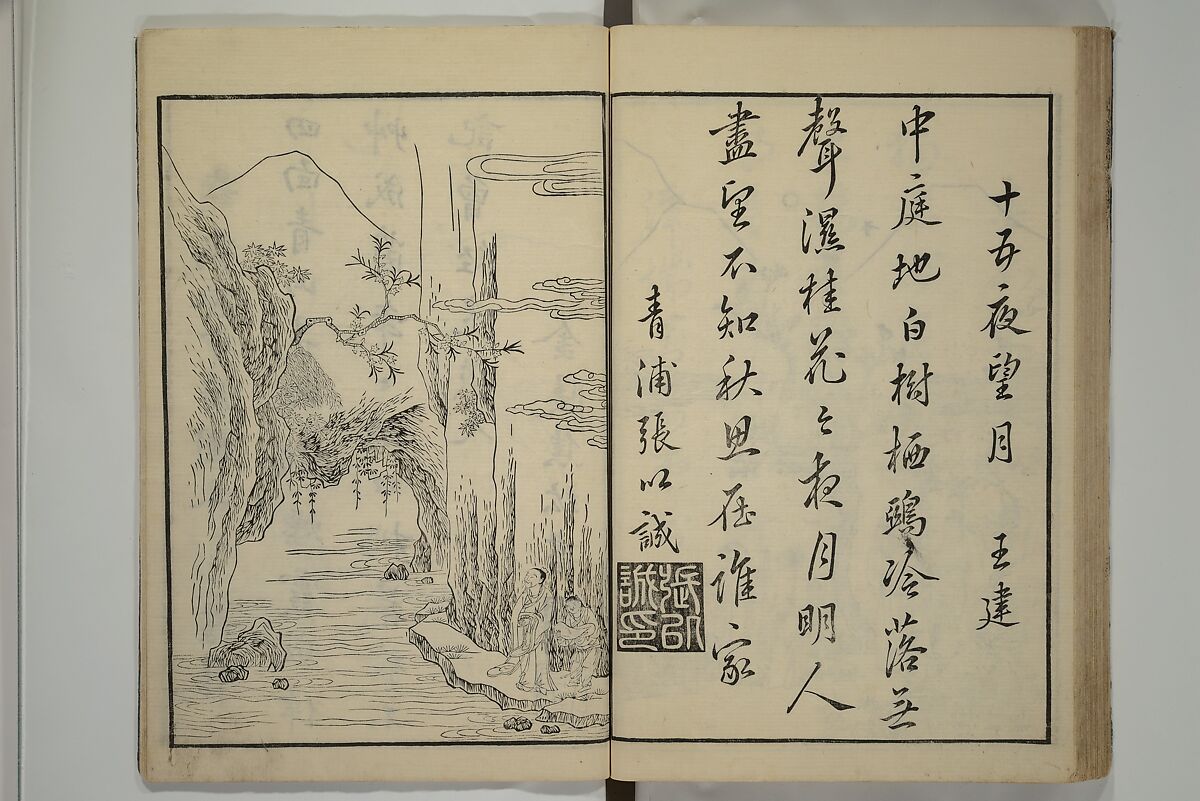 十五夜望月　王建
中庭地白樹栖鴉冷落無
聲濕桂花今夜月明人
盡望不知秋思在誰家
青浦張以誠
張以
誠印